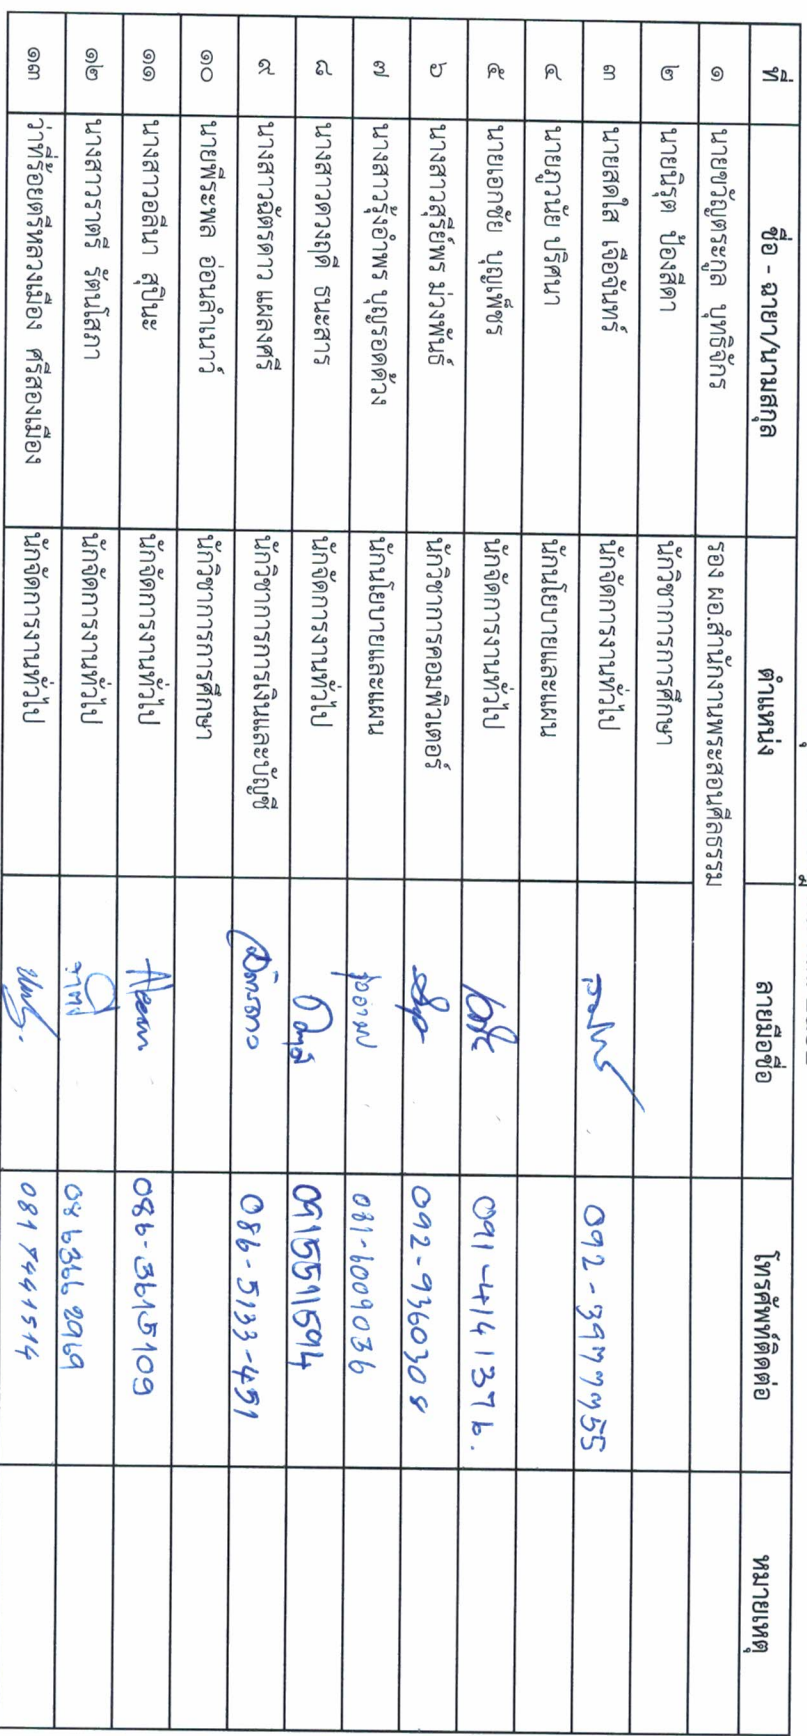 ที่ ชื่อ - ฉายา/นามสกุล ตำแหน่ง ลายมือชื่อ โทรศัพท์ติดต่อ หมายเหตุ
๑ นายขวัญตระกูล บุทธิจักร รอง ผอ.สำนักงานพระสอนศีลธรรม
๒ นายนิรุต ป้องสีดา นักวิชาการการศึกษา
๓ นายสดใส เจือจันทร์ นักจัดการงานทั่วไป 092-3977755
๔ นายภูวนัย ปริศนา นักนโยบายและแผน
๕ นายเอกชัย บุญเพ็ชร นักจัดการงานทั่วไป 091-4141376.
๖ นางสาวสุรีย์พร ม่วงพันธ์ นักวิชาการคอมพิวเตอร์ 092-9360308
๗ นางสาวรุ้งอำพร บุญรอดด้วง นักนโยบายและแผน 081-6009036
๘ นางสาวดวงฤดี ธนะสาร นักจัดการงานทั่วไป 0915511594
๙ นางสาวฉัตรดาว แผลงศรี นักวิชาการการเงินและบัญชี ฉัตรดาว 086-5133-451
๑๐ นายพีระพล อ่อนลำเนาว์ นักวิชาการการศึกษา
๑๑ นางสาวอลีนา สุปินะ นักจัดการงานทั่วไป 086-3615109
๑๒ นางสาวราตรี รัตนโสภา นักจัดการงานทั่วไป ราตรี 086366 2969
๑๓ ว่าที่ร้อยตรีหลวงเมือง ศรีสองเมือง นักจัดการงานทั่วไป